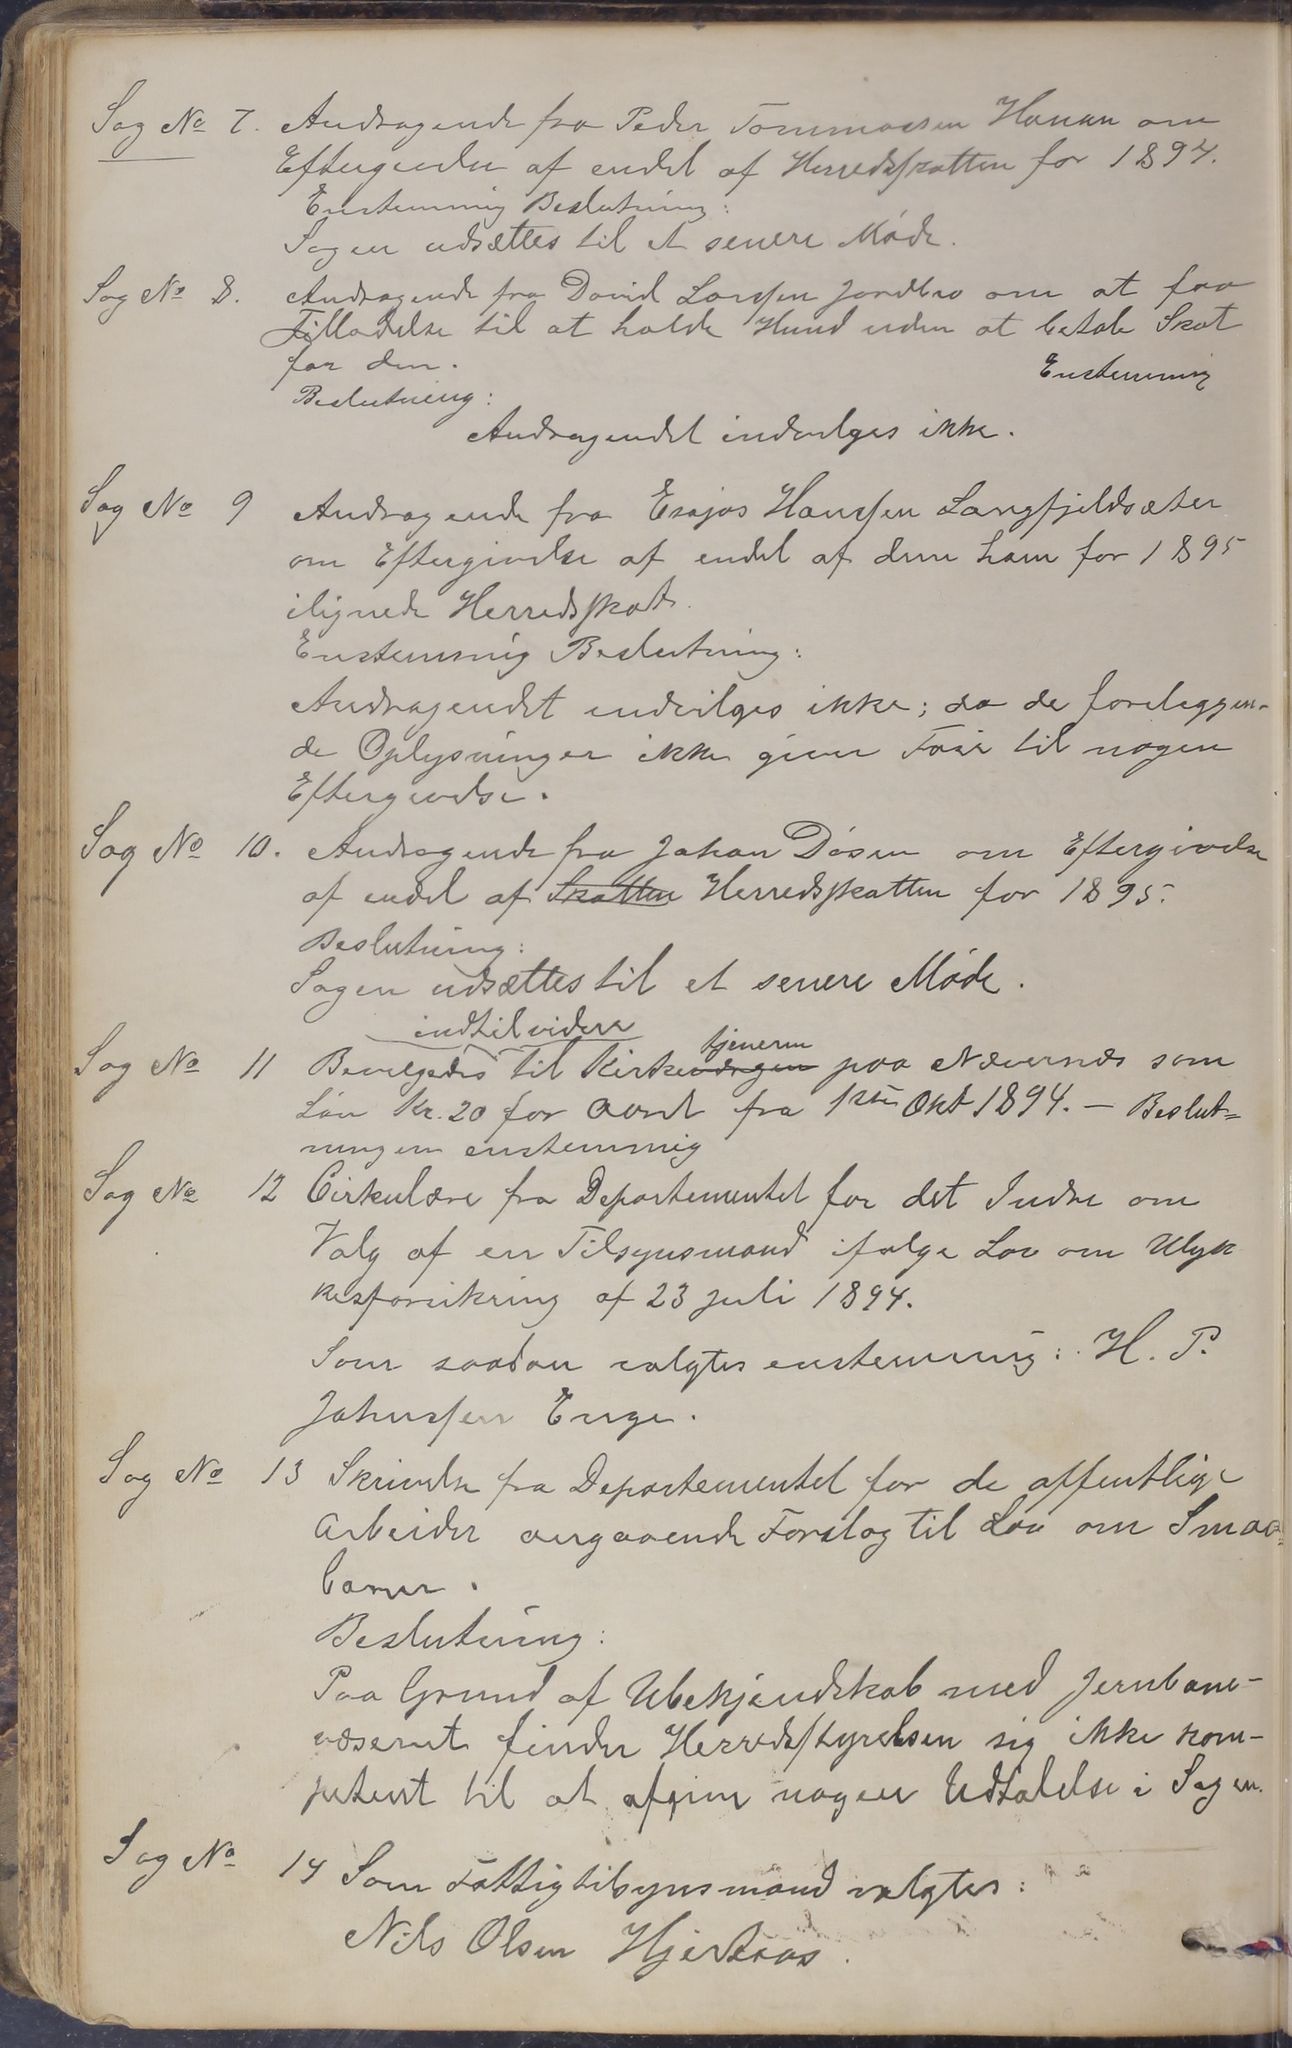 Sag No 7. Andragende fra Peder Tommassen Hanan om
Eftergivelse af endel af Herredsskatten for 1894.
Enstemmig Beslutning:
Sagen udsættes til et senere Møde.
Sag No 8. Andragende fra David Larssen Jordbro om at faa
Tilladelse til at holde Hund uden at betale Skat
for den. Enstemmig
Beslutning:
Andragendet indvilges ikke.
Sag No 9 Andragende fra Esajas Hanssen Langfjeldsæter
om Eftergivelse af endel af den ham for 1895
ilignede Herredsskat.
Enstemmig Beslutning:
Andragendet indvilges ikke; da de foreliggen-
de Oplysninger ikke giver Føie til nogen
Eftergivelse.
Sag No 10. Andragende fra Johan Dåsen om Eftergivelse
af endel af Skatten Herredsskatten for 1895.
Beslutning:
Sagen udsættes til et senere Møde.
indtilvidere
tjeneren
Sag No 11 Bevilgedes til Kirkeværgen paa Nævernæs som
Løn Kr. 20 for Aaret fra 1ste Okt 1894. — Beslut=
ningen enstemmig
Sag No 12 Cirkulære fra Departementet for det Indre om
Valg af en Tilsynsmand ifølge Lov om Ulyk
kesforsikring af 23 Juli 1894.
Som saadan valgtes enstemmig: H. P.
Johnssen Enge.
Sag No 13 Skrivelse fra Departementet for de offentlige
Arbeider angaaende Forslag til Lov om Smaa=
baner.
Beslutning:
Paa Grund af Ubekjendskab med Jernbane-
væsenet finder Herredsstyrelsen sig ikke kom-
petent til at afgive nogen Udtalelse i Sagen.
Sag No 14 Som Fattigtilsynsmand valgtes:
Nils Olsen Hjertaas.